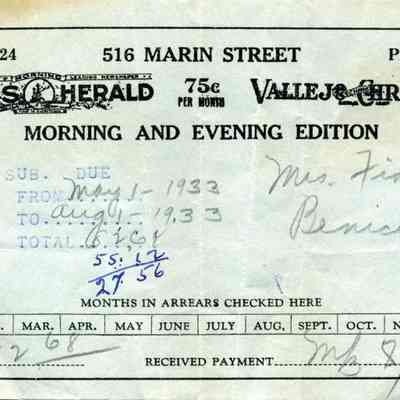 24 516 MARIN STREET P
MORNING LEADING NEWSPAPER
S HERALD 75¢ PER MONTH VALLEJO CHR
MORNING AND EVENING EDITION
SUB. DUE
FROM May 1 - 1933 Mrs.
TO Aug 1 - 1933 Benic
TOTAL
55.12
27.56
MONTHS IN ARREARS CHECKED HERE
MAR. APR. MAY JUNE JULY AUG. SEPT. OCT. N
2 68 RECEIVED PAYMENT